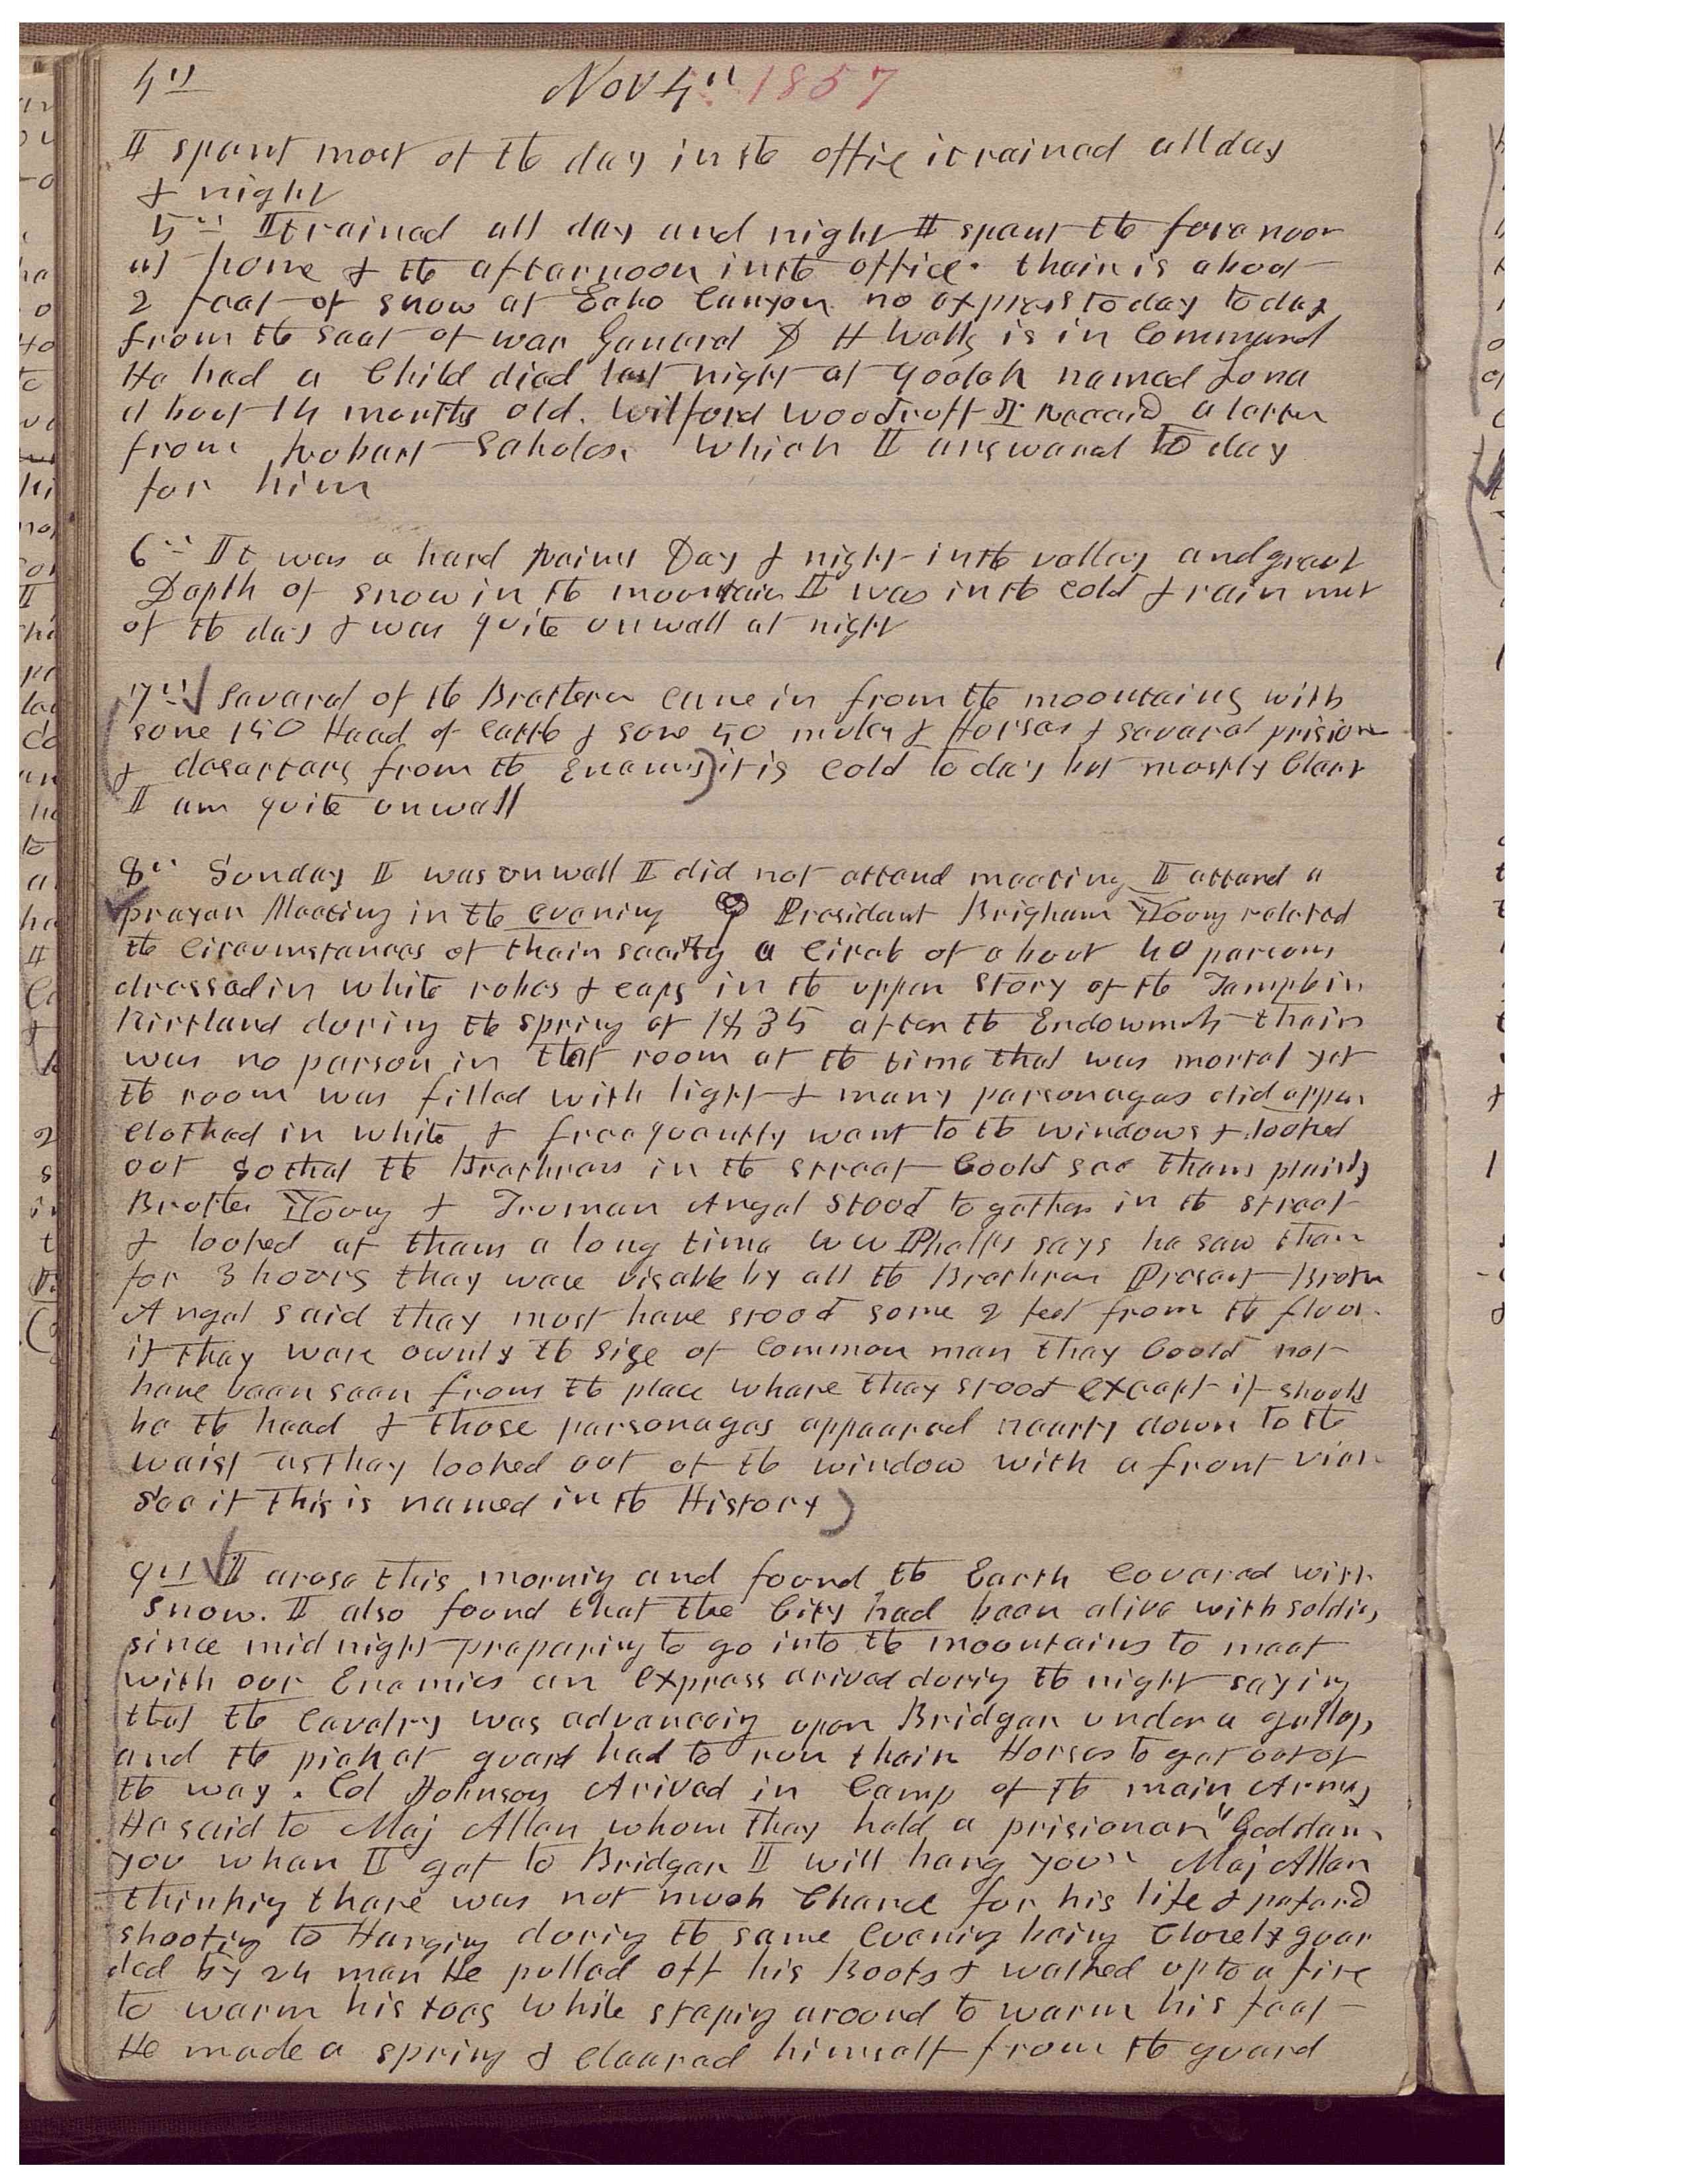 4" Nov 4" 1857
I spent most of the day in the office it rained all day
& night
5" It rained all day and night I spent the forenoon
at home & the afternoon in the office. their is about
2 feet of snow at Echo Canyon no express to day to day
from the seat of war General D H Wells is in Command
He had a Child died last night at 4 oclok named Lona
about 14 months old. Wilford Woodruff Jr Receid a letter
from Robert Scholes. which I answered to day
for him
6" It was a hard rainy Day & night in the valley and great
Depth of snow in the mountain I was in the cold & rain most
of the day & was quite unwell at night
7" Several of the Brethren came in from the mountains with
some 150 Head of cattle & some 50 mules & Horses & several prision
& desarters from the Enemy) it is cold to day but mostly Clear
I am quite unwell
8" Sunday I was unwell I did not attend meeting I attend a
prayer Meeting in the evening President Brigham Young related
the Circumstances of their seeing a Circle of about 40 persons
dressed in white robes & caps in the upper story of the Temple in
Kirtland during the spring of 1835 after the Endowments their
was no person in that room at the time that was mortal yet
the room was filled with light & many personages did appear
Clothed in white & freequently went to the windows & looked
out so that the Brethren in the street Could see them plainly
Brother Young & Truman Angel stood together in the street
& looked at them a long time W W Phelps says he saw them
for 3 hours they were visable by all the Brethren Present Brother
Angel said they must have stood some 2 feet from the floor.
if they ware ownly the size of common man they Could not
have been seen from the place whare they stood except it should
be the head & those personages appeared nearly down to the
waist as they looked out of the window with a front view
See if this is named in the History)
9" I arose this morning and found the Earth Covered with
snow. I also found that the City had been alive with soldiers
since midnight prepairing to go into the mountains to meet
with our Enemies an express arived during the night saying
that the Cavalry was advanceing upon Bridger under a gallop
and the picket guard had to run their Horses to get out of
the way. Col Johnson Arived in Camp of the main Army
He said to Maj Allen whom they held a prisioner "God dam
you when I get to Bridger I will hang you" Maj Allen
thinking thare was not much Chance for his life & prefered
shooting to Hanging during the same evening being Closely guar
ded by 24 men He pulled off his Boots & walked up to a fire
to warm his toes while steping around to warm his feet
He made a spring & cleared himself from the guard